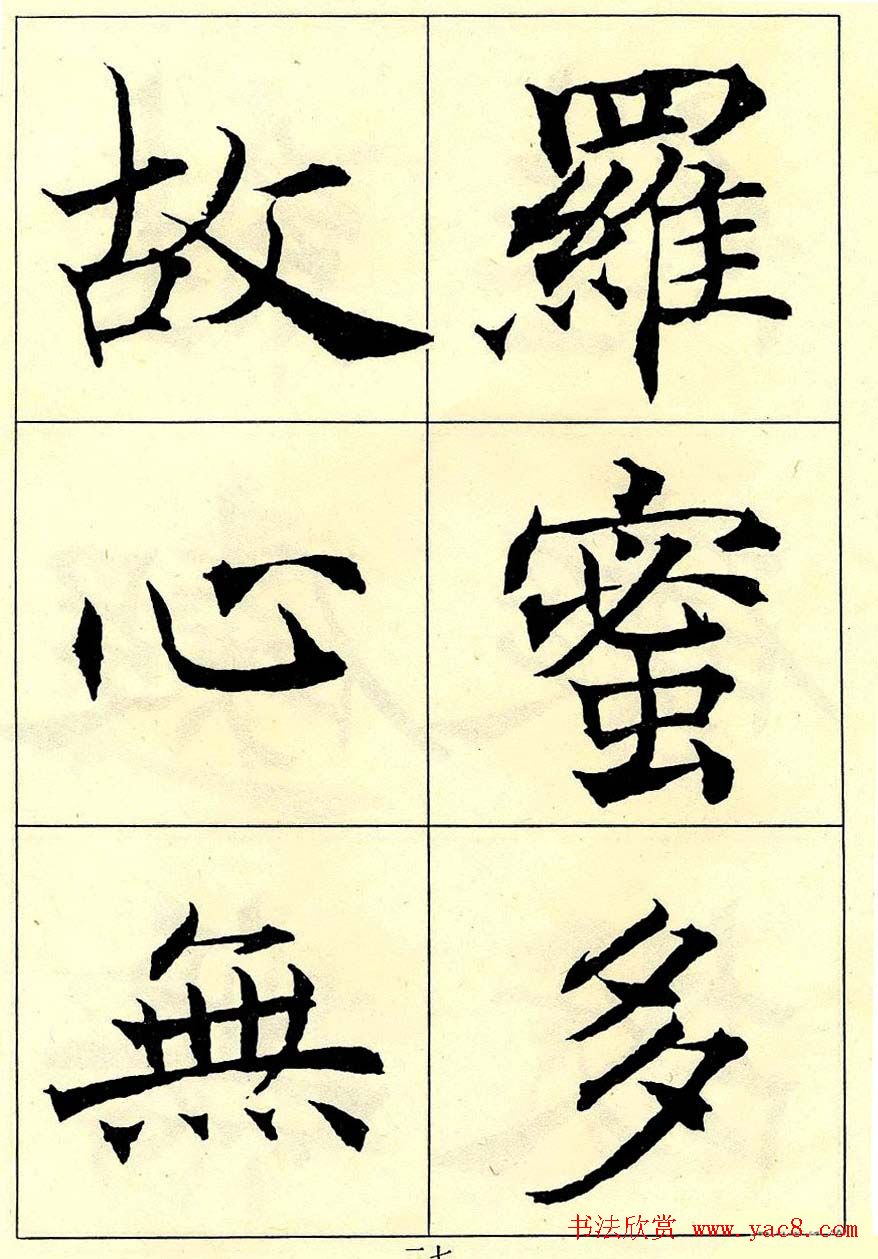 羅蜜多
故心無
二七
书法欣赏 www.yac8.com